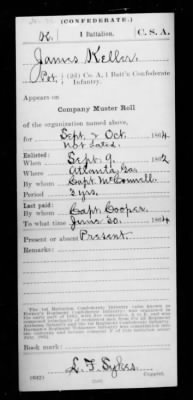 (CONFEDERATE.)
1 Battalion. C. S. A.
James Keller
Pvt, (2d) Co. A, 1 Batt'n Confederate
Infantry.
Appears on
Company Muster Roll
of the organization named above,
for Sept & Oct, 1864
Not dated.
Enlisted:
When Sept. 9, 1862
Where Atlanta, Ga
By whom Capt. McConnell
Period 3 yrs.
Last paid:
By whom Capt. Cooper.
To what time June 30, 1864
Present or absent Present.
Remarks:
The 1st Battalion Confederate Infantry (also known as
Book mark:
L. F. Sykes
(642) Copyist.